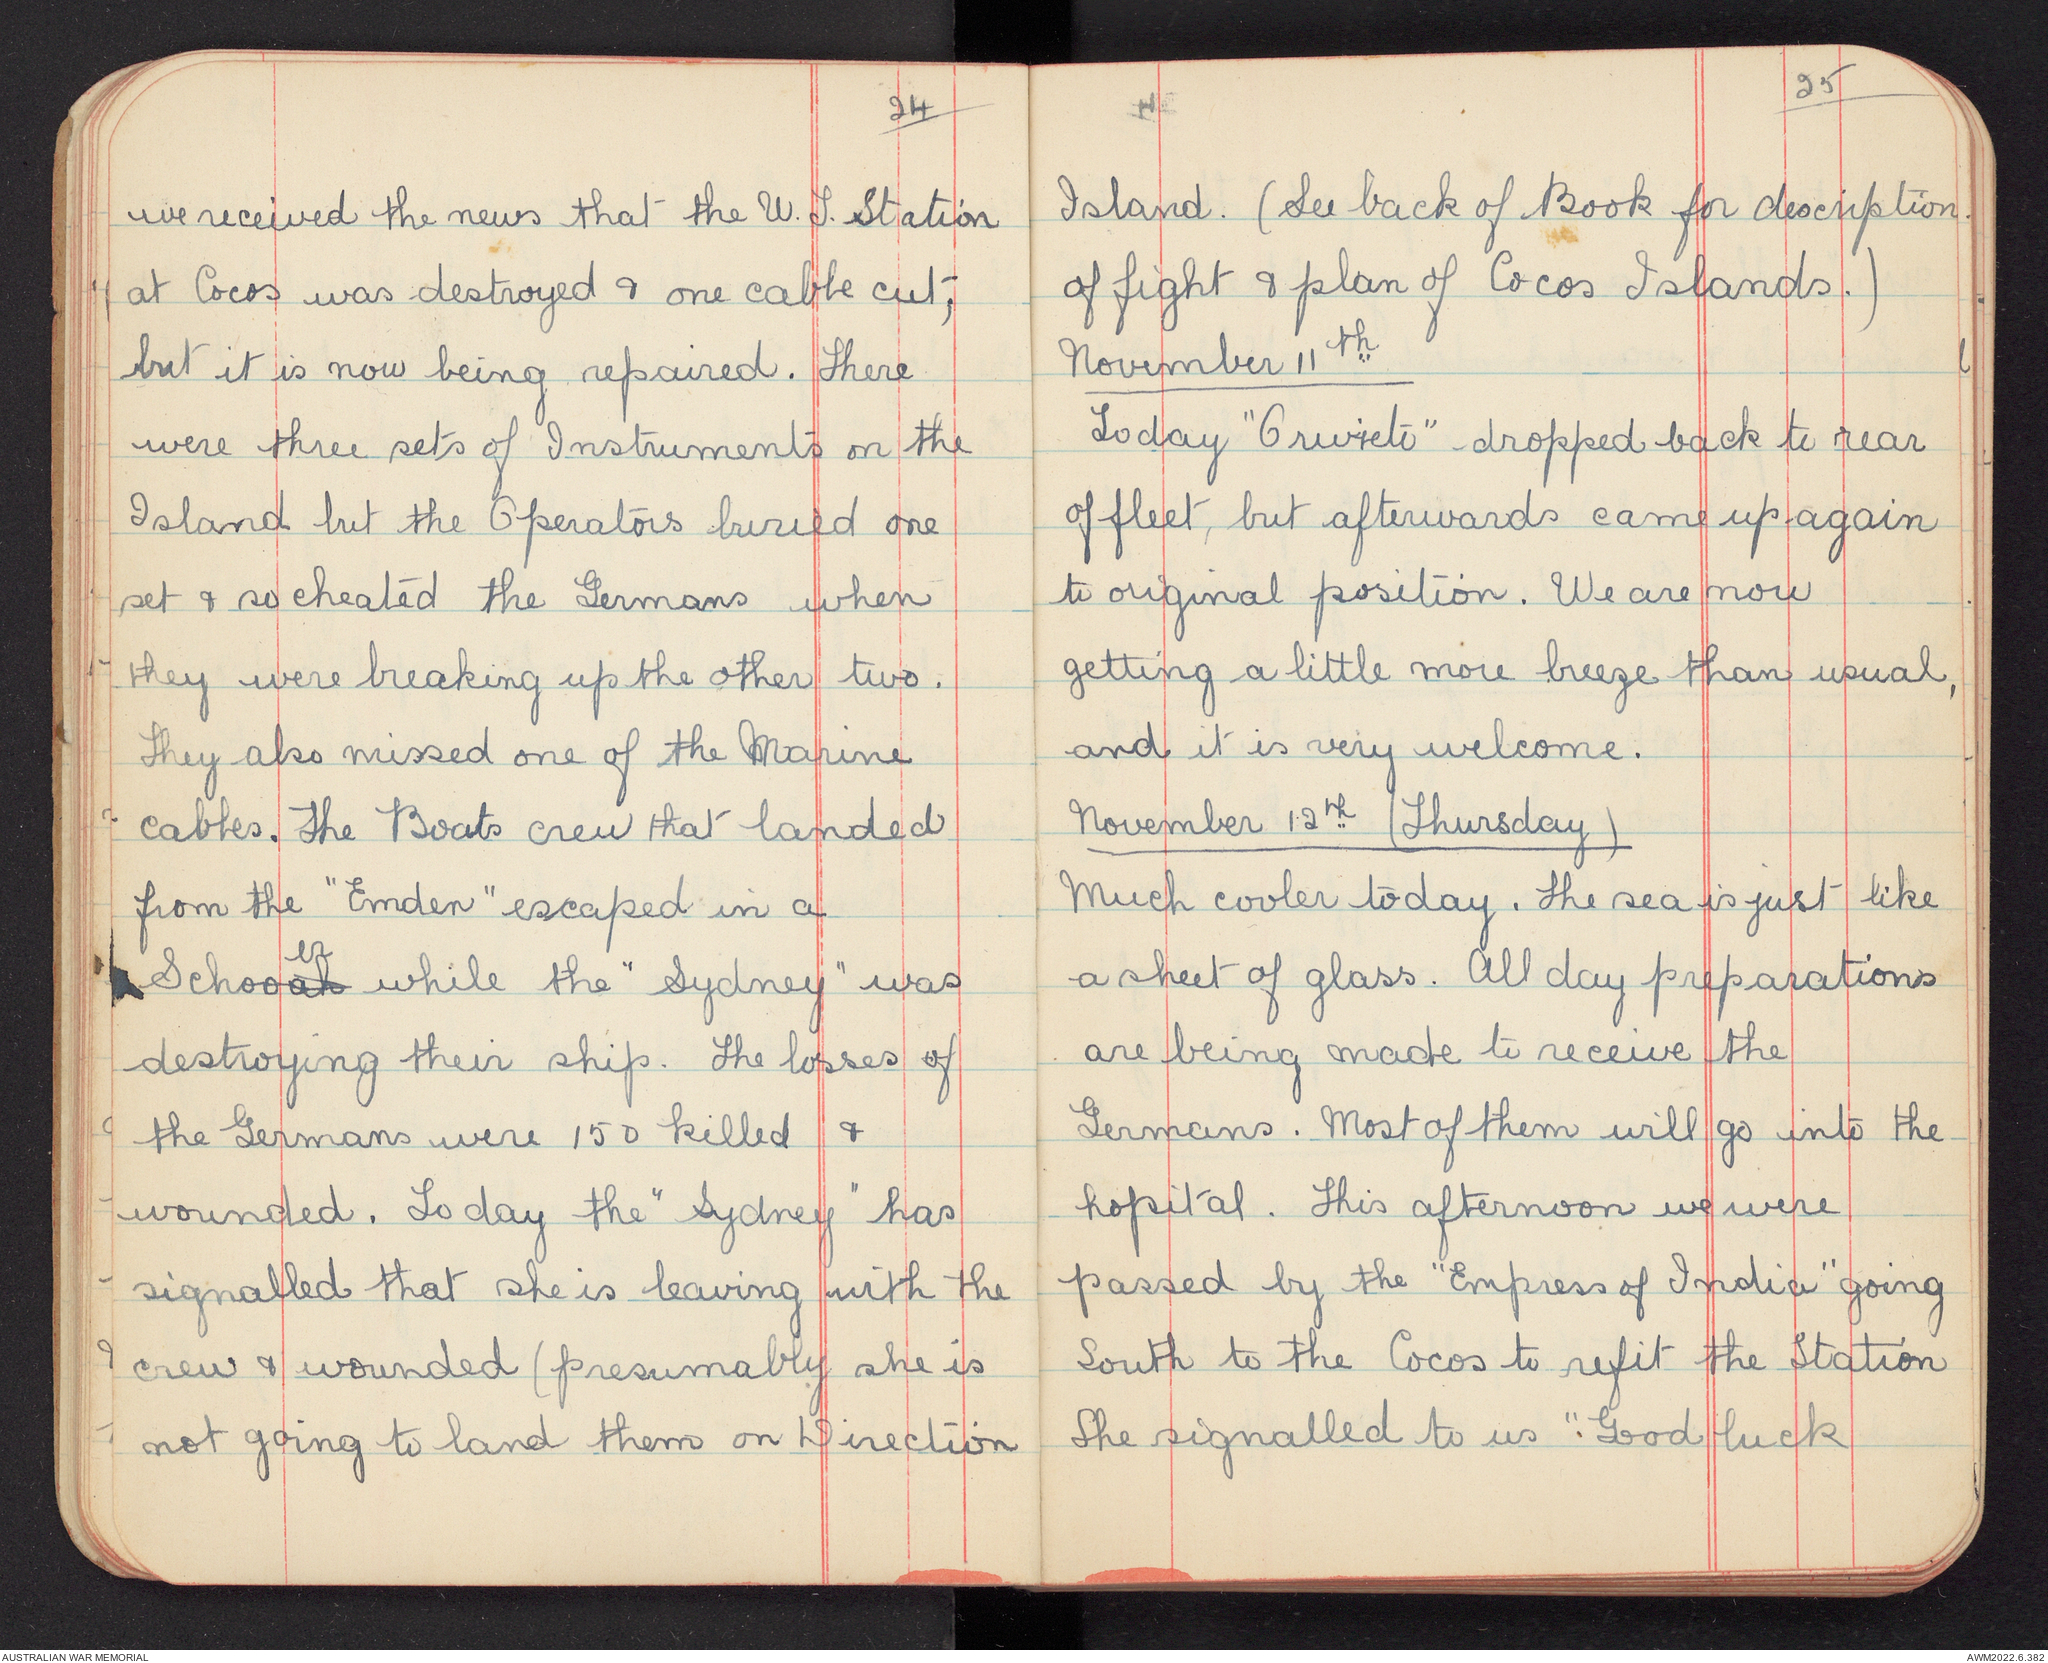 24
we received the news that the W. T. Station
at Cocos was destroyed & one cable cut,
but it is now being repaired. There
were three sets of Instruments on the
Island but the Operators buried one
set & so cheated the Germans when
they were breaking up the other two.
They also missed one of the Marine
cables. The Boats crew that landed
from the "Emden" escaped in a
er
Schooats while the "Sydney" was
destroying their ship. The losses of
the Germans were 150 killed &
wounded. Today the "Sydney" has
signalled that she is leaving with the
crew & wounded (presumably she is
not going to land them on Direction
25
Island. (See back of Book for description
of fight & plan of Cocos Islands.)
November 11th
Today "Orvieto" dropped back to rear
of fleet, but afterwards came up again
to original position. We are now
getting a little more breeze than usual,
and it is very welcome.
November 12th (Thursday)
Much cooler today. The sea is just like
a sheet of glass. All day preparations
are being made to receive the
Germans. Most of them will go into the
hopital. This afternoon we were
passed by the "Empress of India" going
South to the Cocos to refit the Station
She signalled to us ": Good luck
AUSTRALIAN WAR MEMORIAL
AWM2022.6.382